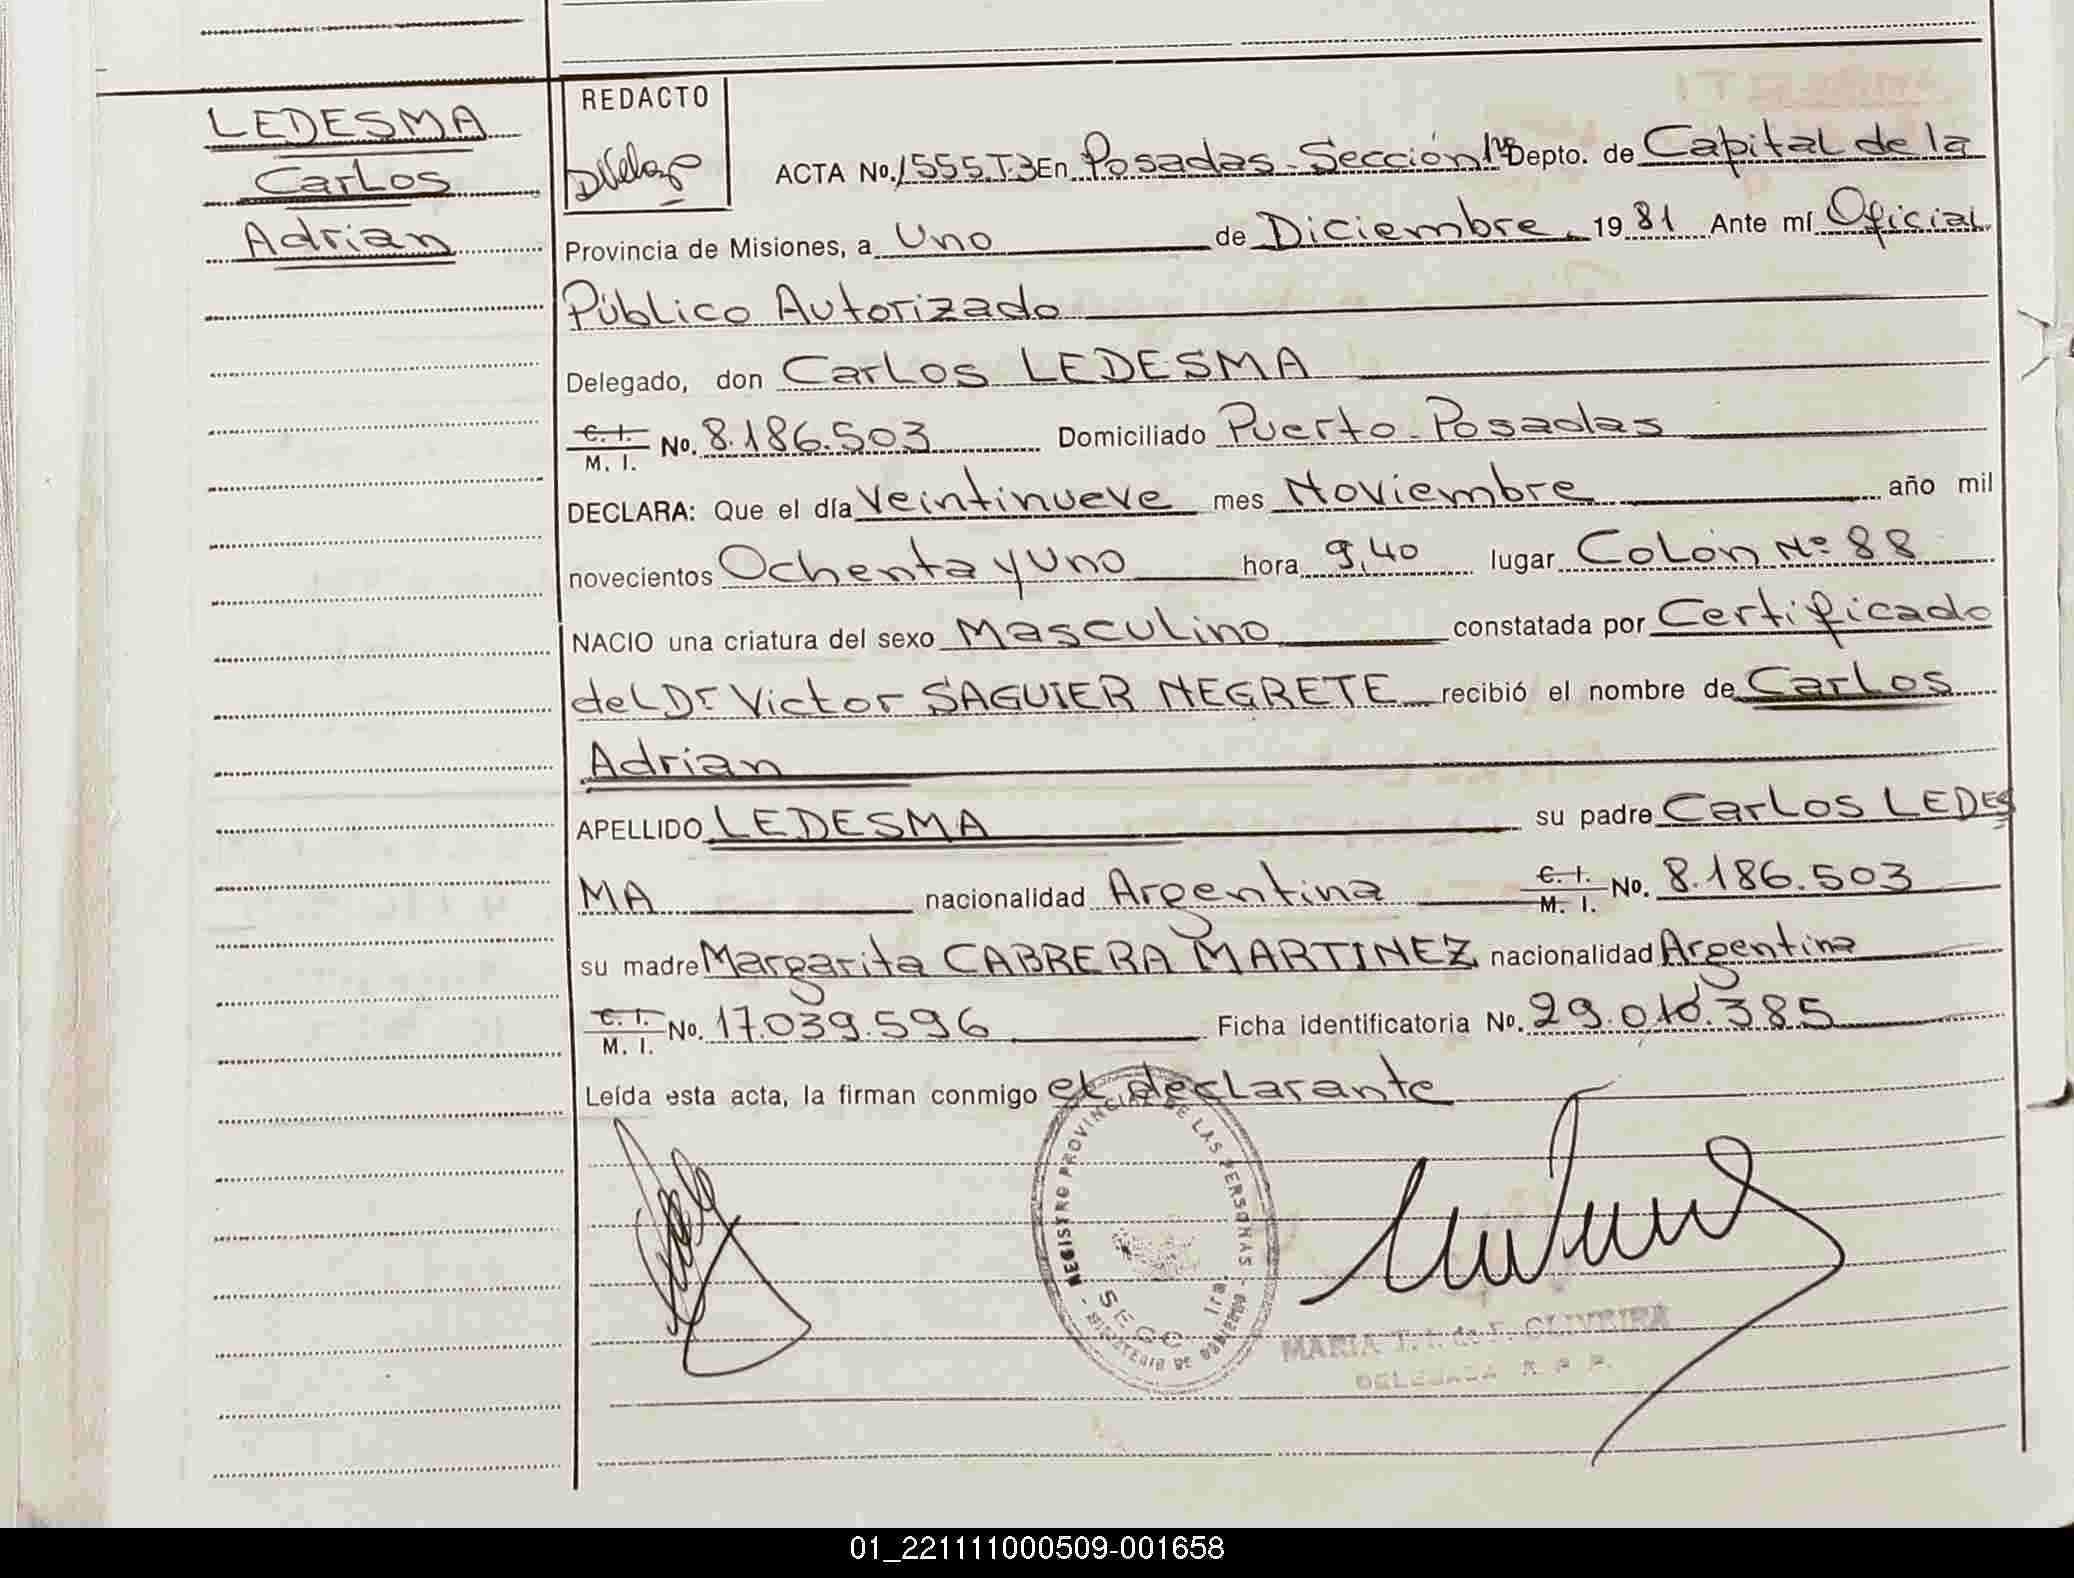 LEDESMA
Carlos
Adrian
REDACTO
ACTA No. 1555 T.3 En Posadas - Sección 1ra Depto. de Capital de la
Provincia de Misiones, a Uno de Diciembre 1981 Ante mí Oficial
Público Autorizado
Delegado, don Carlos LEDESMA
C. I. M. I. No. 8.186.503 Domiciliado Puerto - Posadas
DECLARA: Que el día Veintinueve mes Noviembre año mil
novecientos Ochenta y Uno hora 9,40 lugar Colón Nº 88
NACIO una criatura del sexo Masculino constatada por Certificado
del Dr Victor SAGUIER NEGRETE recibió el nombre de Carlos
Adrian
APELLIDO LEDESMA su padre Carlos LEDES
MA nacionalidad Argentina C. I. M. I. No. 8.186.503
su madre Margarita CABRERA MARTINEZ nacionalidad Argentina
C. I. M. I. No. 17.039.596 Ficha identificatoria No. 29.010.385
Leída esta acta, la firman conmigo el declarante
REGISTRO PROVINCIAL DE LAS PERSONAS - MINISTERIO DE GOBIERNO -
SECC. 1ra.
MARIA T. de F. OLIVEIRA
DELEGADA R. P. P.
01_221111000509-001658